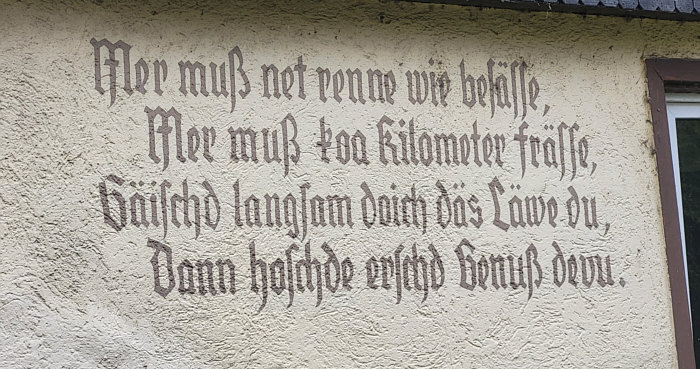 Mer muß net renne wie besässe,
Mer muß koa Kilometer frässe,
Gäischd langsam doich däs Läwe du,
Dann hoschde erschd Genuß devu.